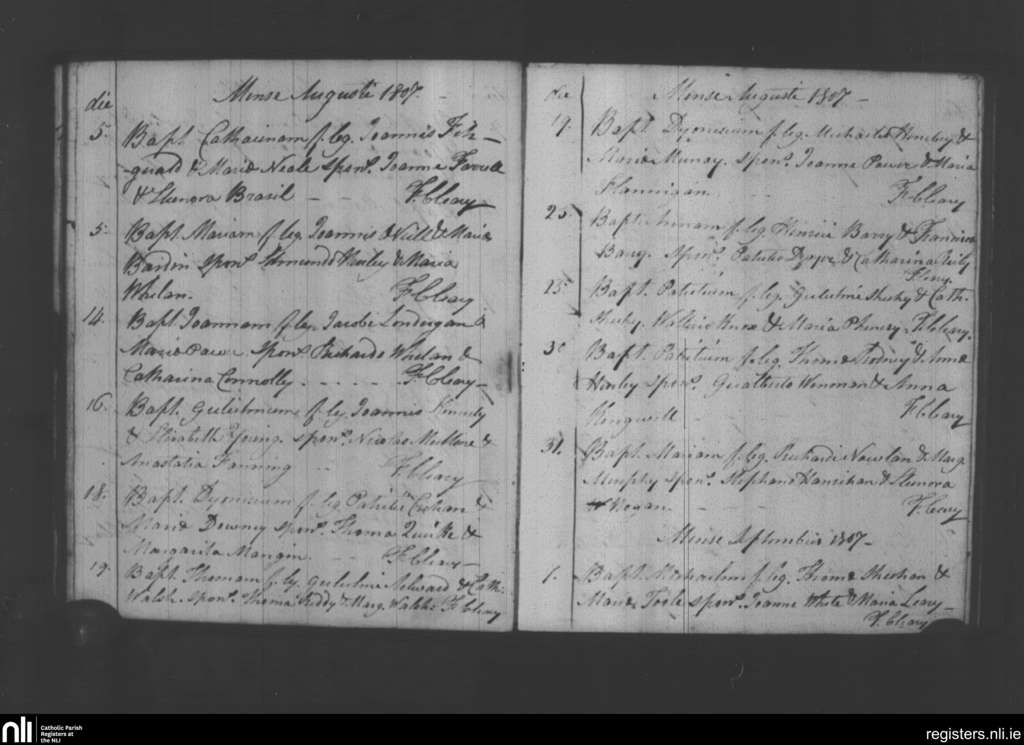 Mense Augusti 1807.
die
5. Bapt. Catharinam f. leg. Joannis Fitz-
gerald & Maria Neale spons. Joanne Farrell
& Elenora Brasil F. Cleary
5. Bapt. Mariam f. leg. Joannis & Maria
Bardin spons. Edmundo & Maria
Whelan. F. Cleary
14. Bapt. Joannam f. leg. Jacobi Londergan &
Maria Power spons. Richardo Whelan &
Catharina Connolly F. Cleary
16. Bapt. Gulielmum f. leg. Joannis Kennedy
& Elizabeth Young. spons. Nicolao &
Anastatia Fanning F. Cleary
18. Bapt. Dyonisium f. leg. Patritii &
Maria Downey spons. Thoma Quirke &
Margarita Mangin F. Cleary
19. Bapt. Thomam f. leg. Gulielmi Aelward & Cath.
Walsh. spons. Thoma Reddy & Marg. Walshe F. Cleary
die Mense Augusti 1807
19. Bapt. Dyonisium f. leg. Michaelis &
Maria Murray. spons. Joanne Power & Maria
Flannigan F. Cleary
25. Bapt. f. leg. Henrici Barry & Francisca
Barry. spons. Patritio Dwyer & Catharina Reily
F. Cleary
25. Bapt. Patritium f. leg. Gulielmi & Cath.
& Maria F. Cleary
30 Bapt. Patritium f. leg. Thoma & Anna
Henley spons. Gualterio Wenman & Anna
F. Cleary
31. Bapt. Mariam f. leg. Richardi Nowlan & Marg.
Murphy spons. Stephano Hanrahan & Elenora
Hogan F. Cleary
Mense Septembris 1807
1. Bapt. Michaelem f. leg. Thoma Sheehan &
Maria Toole spons. Joanne White & Maria Leary
F. Cleary
nli
Catholic Parish
Registers at
the NLI
registers.nli.ie